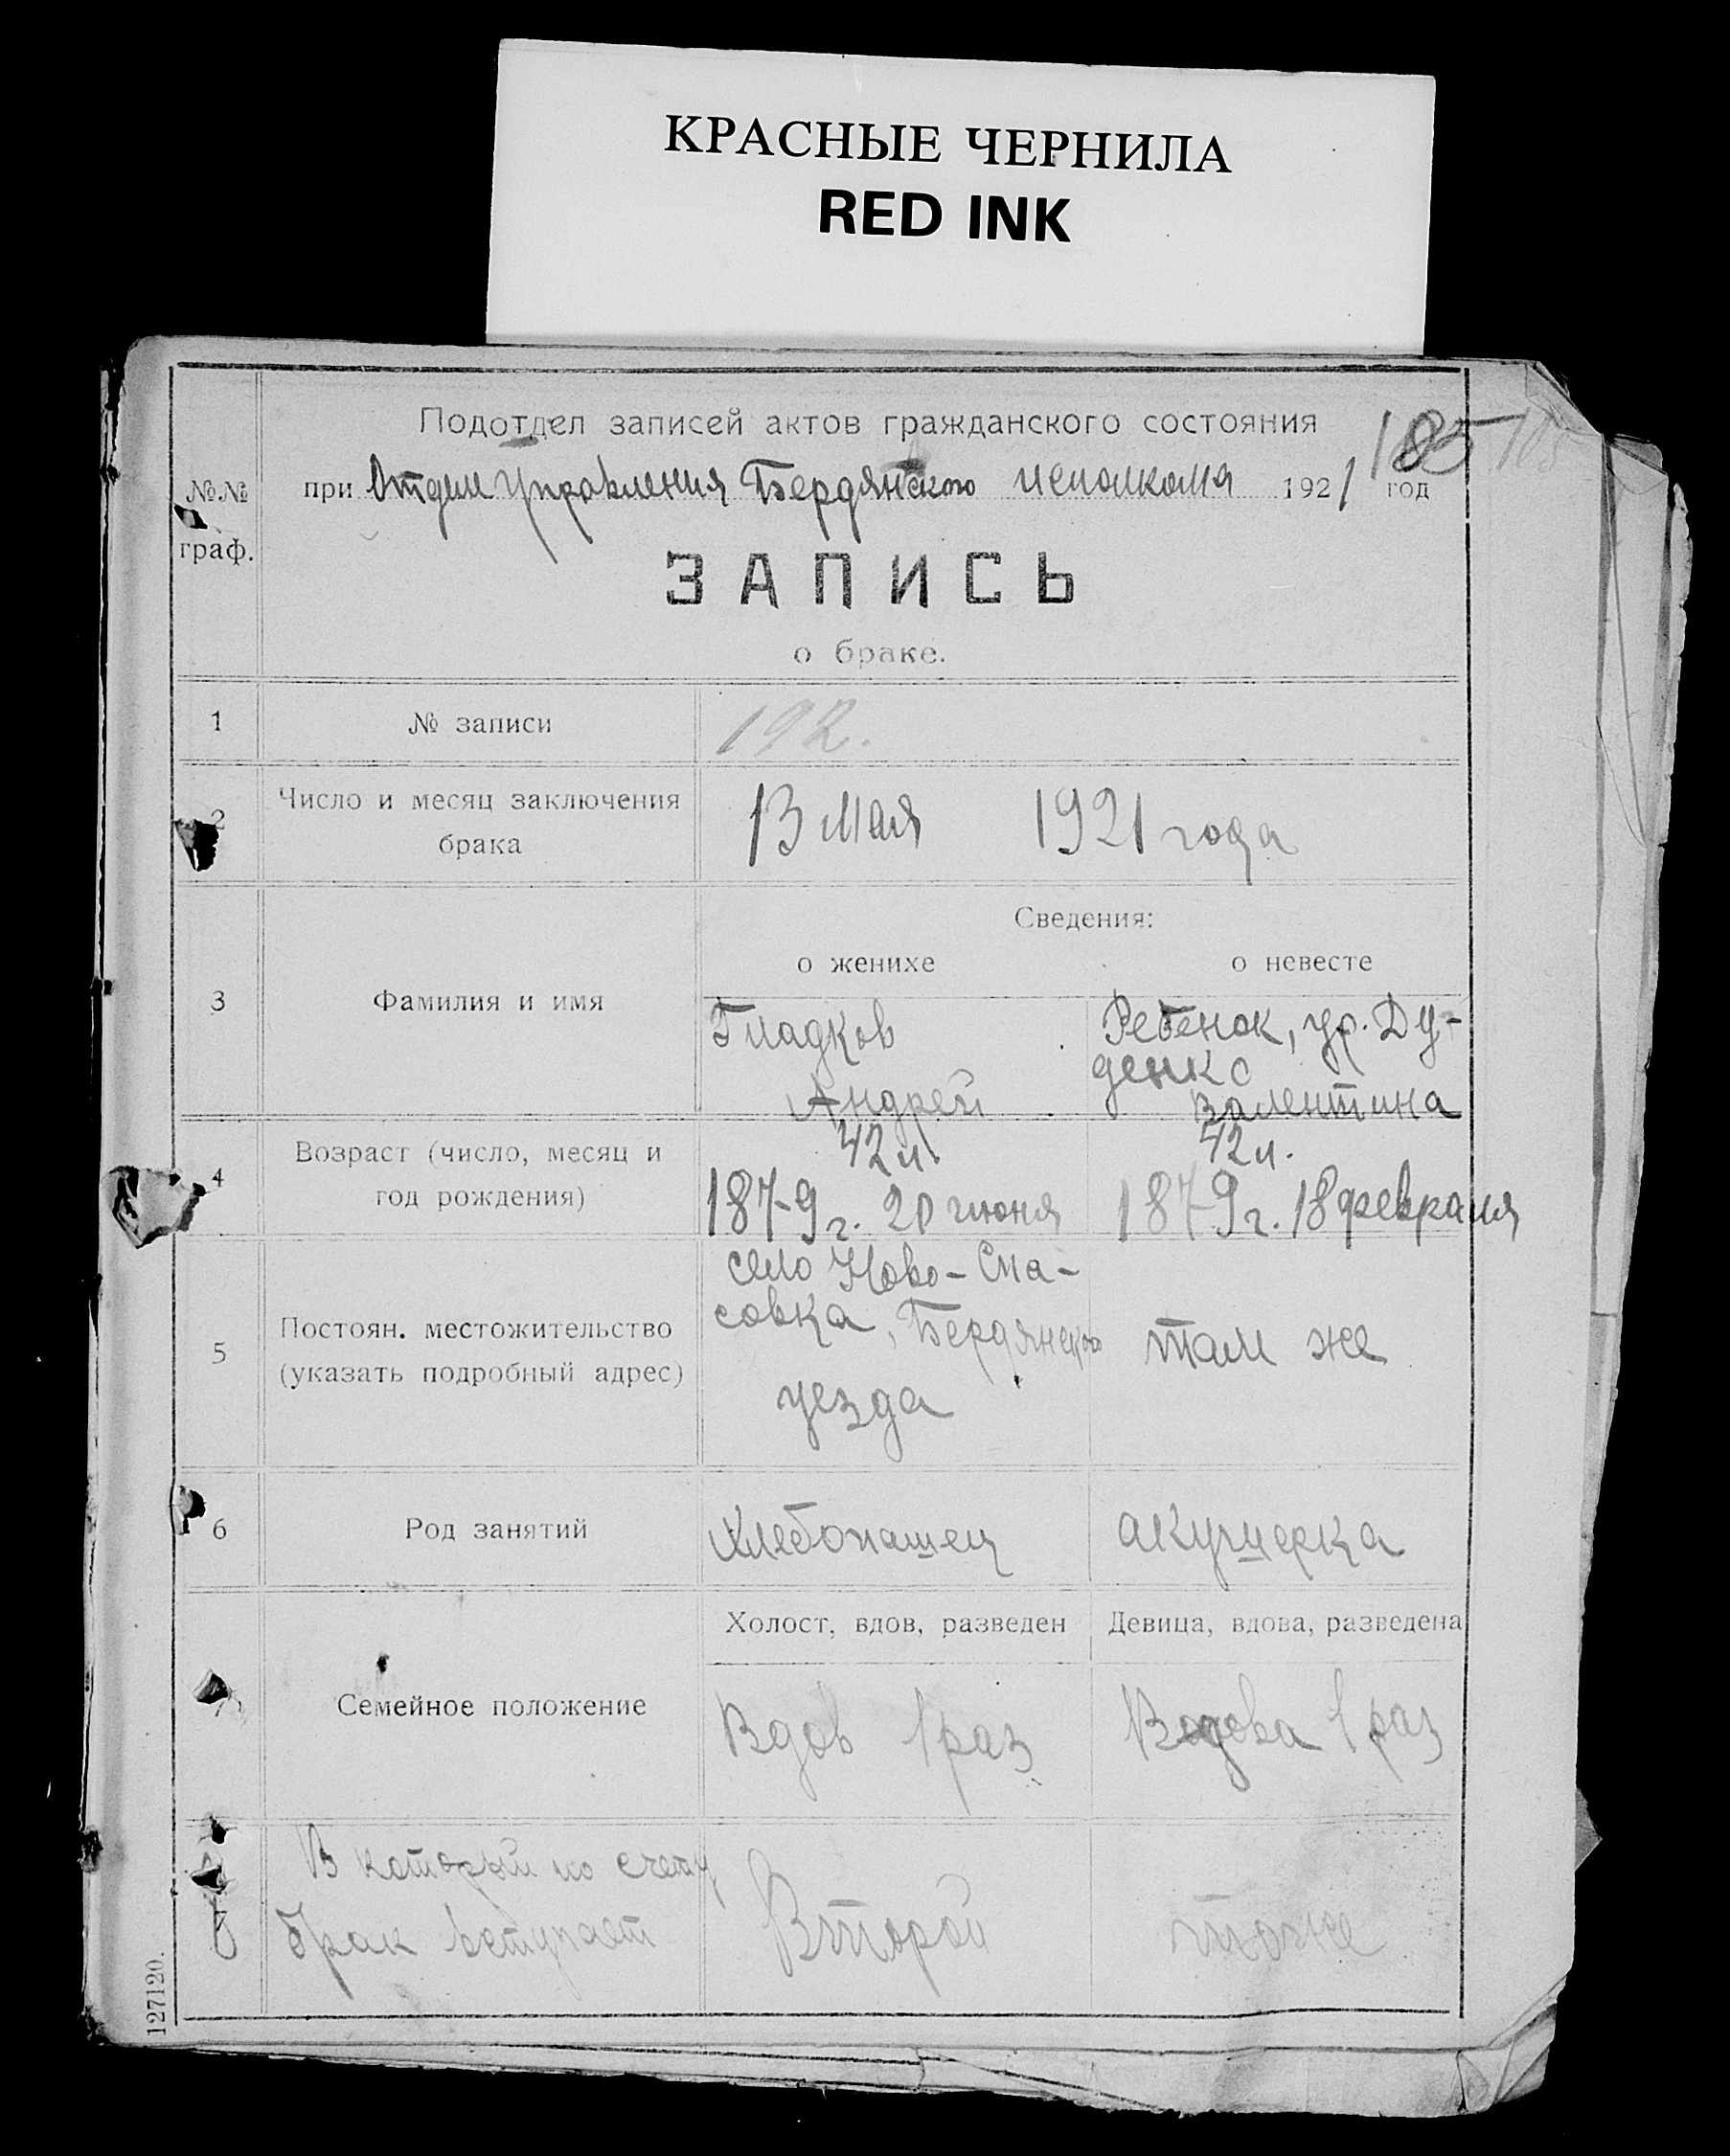 КРАСНЫЕ ЧЕРНИЛА
RED INK
Подотдел записей актов гражданского состояния
185
№№ граф.
при Отделе Управления Бердянского исполкома 1921 год
ЗАПИСЬ
о браке.
1 № записи 192.
2 Число и месяц заключения брака 13 мая 1921 года
Сведения:
о женихе о невесте
3 Фамилия и имя
Гладков
Андрей
Ребенок, ур. Ду-
денко
Валентина
4 Возраст (число, месяц и
год рождения)
42 л.
1879 г. 20 июня
42 л.
1879 г. 18 февраля
5 Постоян. местожительство
(указать подробный адрес)
село Ново-Спа-
совка, Бердянского
уезда
там же
6 Род занятий Хлебопашец акушерка
Холост, вдов, разведен Девица, вдова, разведена
7 Семейное положение Вдов 1 раз Вдова 1 раз
В который по счету
брак вступает
Второй тоже
127120.